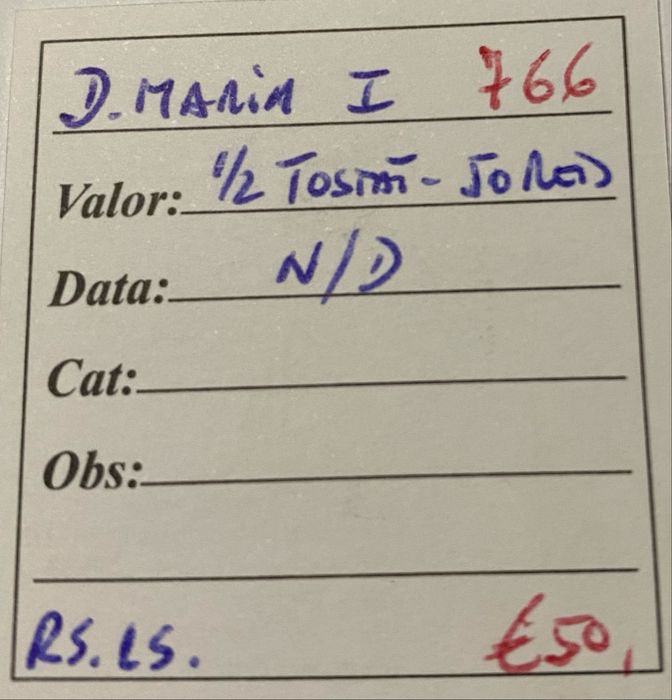 D. MARIA I 766
Valor: 1/2 TOSTÃO - 50 REIS
Data: N/D
Cat:
Obs:
RS. LS. €50,